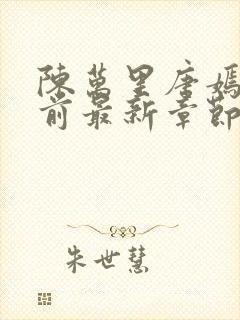 陳萬里唐嫣
前最新章節
朱世慧